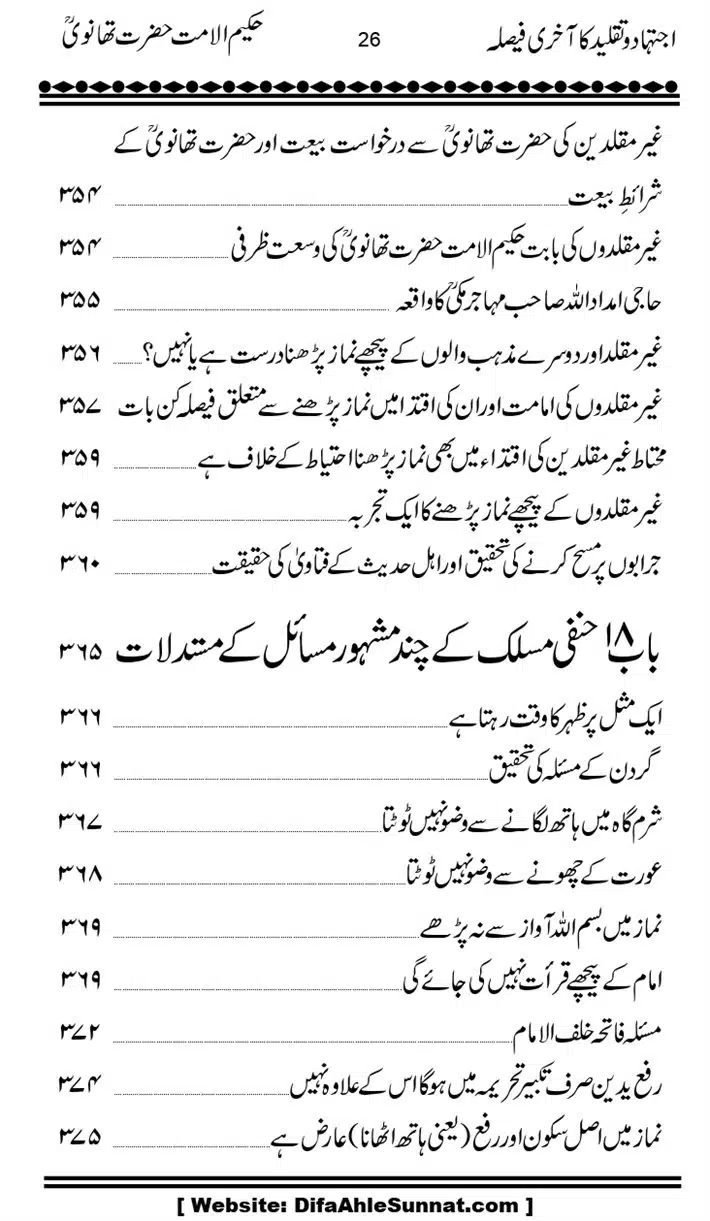 اجتہاد و تقلید کا آخری فیصلہ 26 حکیم الامت حضرت تھانویؒ
غیر مقلدین کی حضرت تھانویؒ سے درخواست بیعت اور حضرت تھانویؒ کے
شرائطِ بیعت ۳۵۴
غیر مقلدوں کی بابت حکیم الامت حضرت تھانویؒ کی وسعت ظرفی ۳۵۴
حاجی امداد اللہ صاحب مہاجر مکیؒ کا واقعہ ۳۵۵
غیر مقلد اور دوسرے مذہب والوں کے پیچھے نماز پڑھنا درست ہے یا نہیں؟ ۳۵۶
غیر مقلدوں کی امامت اور ان کی اقتدا میں نماز پڑھنے سے متعلق فیصلہ کن بات ۳۵۷
محتاط غیر مقلدین کی اقتداء میں بھی نماز پڑھنا احتیاط کے خلاف ہے ۳۵۹
غیر مقلدوں کے پیچھے نماز پڑھنے کا ایک تجربہ ۳۵۹
جرابوں پر مسح کرنے کی تحقیق اور اہل حدیث کے فتاویٰ کی حقیقت ۳۶۰
باب ۱۸ حنفی مسلک کے چند مشہور مسائل کے مستدلات ۳۶۵
ایک مثل پر ظہر کا وقت رہتا ہے ۳۶۶
گردن کے مسئلہ کی تحقیق ۳۶۶
شرم گاہ میں ہاتھ لگانے سے وضو نہیں ٹوٹتا ۳۶۷
عورت کے چھونے سے وضو نہیں ٹوٹتا ۳۶۸
نماز میں بسم اللہ آواز سے نہ پڑھے ۳۶۹
امام کے پیچھے قرأت نہیں کی جائے گی ۳۶۹
مسئلہ فاتحہ خلف الامام ۳۷۲
رفع یدین صرف تکبیر تحریمہ میں ہوگا اس کے علاوہ نہیں ۳۷۴
نماز میں اصل سکون اور رفع (یعنی ہاتھ اٹھانا) عارض ہے ۳۷۵
[ Website: DifaAhleSunnat.com ]